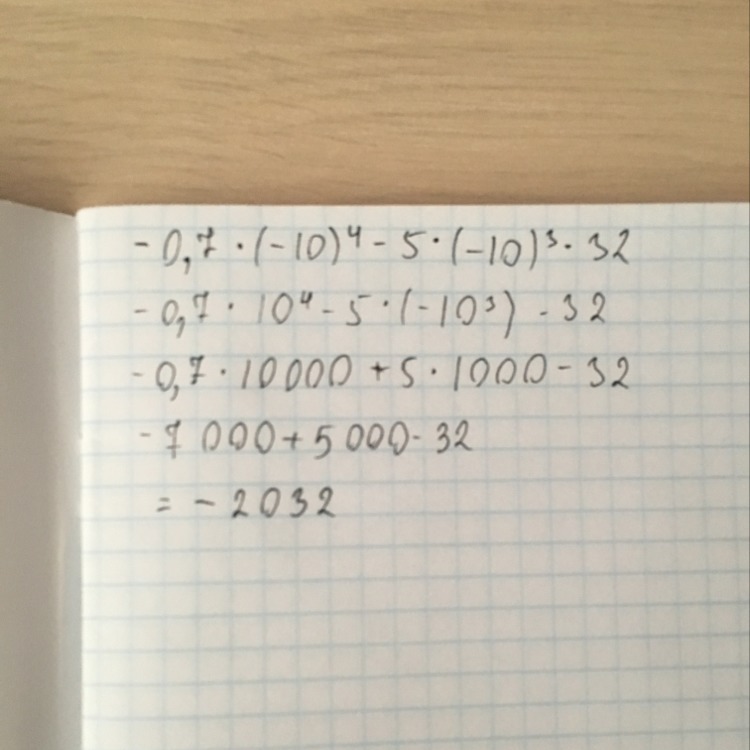 -0,7·(-10)⁴-5·(-10)³-32
-0,7·10⁴-5·(-10³)-32
-0,7·10000+5·1000-32
-7 000+5 000-32
=-2032